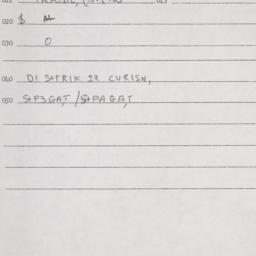 020 $ M
030 O
040 DI STRIK 22 CURISN,
050 S+P3GAT, /S+PAGAT,